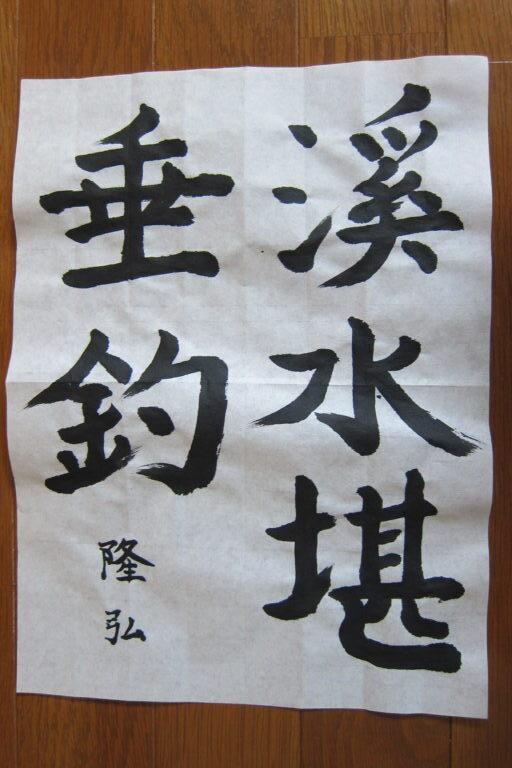 溪水堪
垂釣
隆弘